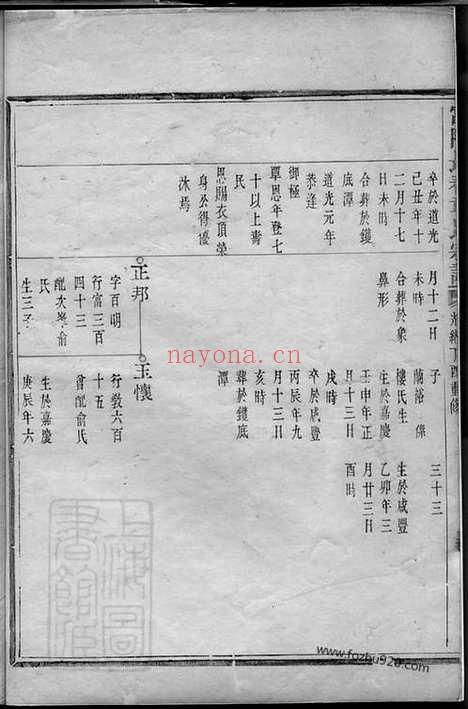 卒於道光
己丑年十
二月十七
日未時
合葬於鑊
底潭
道光元年
恭逢
御極
覃恩年登七
十以上耆
民
恩賜衣頂榮
身公得優
沐焉
月十二日
未時
合葬於象
鼻形
正邦
字百明
行富三百
四十三
配次峯俞
氏
生三子
子
蘭溶 係
樓氏生
生於嘉慶
壬申年正
月十三日
戌時
卒於咸豐
丙辰年九
月十三日
亥時
葬於鑊底
潭
三十三
生於咸豐
乙卯年三
月廿三日
酉時
主懷
行敎六百
十五
配俞氏
生於嘉慶
庚辰年六
光緒丁酉重修
上海圖書館藏
nayona.cn
www.fozhu920.com